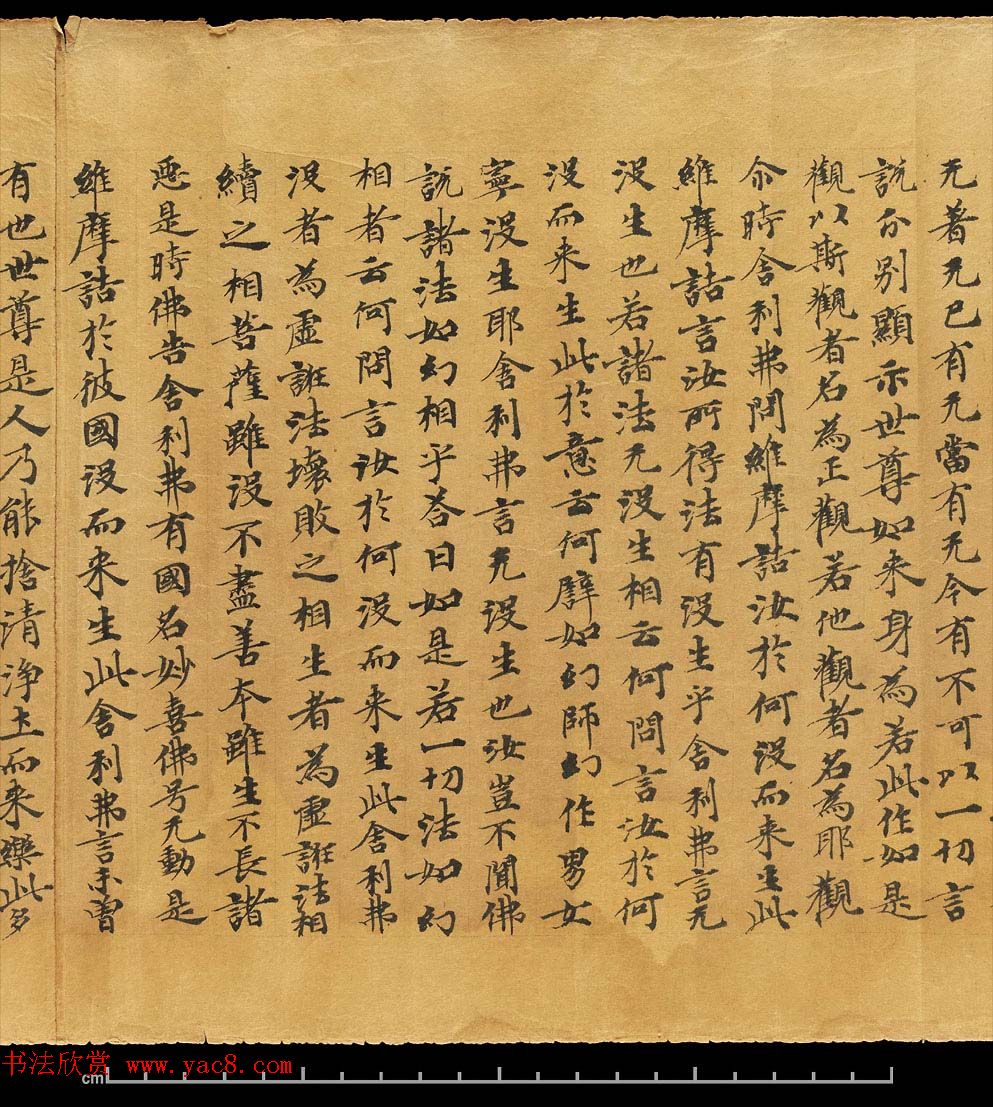 无著无已有无當有无今有不可以一切言
説分别顯示世尊如来身為若此作如是
觀以斯觀者名為正觀若他觀者名為耶觀
尒時舎利弗問維摩詰汝於何没而来生此
維摩詰言汝所得法有没生乎舎利弗言无
没生也若諸法无没生相云何問言汝於何
没而来生此於意云何譬如幻師幻作男女
寧没生耶舎利弗言无没生也汝豈不聞佛
説諸法如幻相乎荅曰如是若一切法如幻
相者云何問言汝於何没而来生此舎利弗
没者為虚誑法壊敗之相生者為虚誑法相
續之相菩薩雖没不盡善本雖生不長諸
悪是時佛告舎利弗有國名妙喜佛号无動是
維摩詰於彼國没而来生此舎利弗言未曽
有也世尊是人乃能捨清浄土而来樂此多
书法欣赏 www.yac8.com
cm